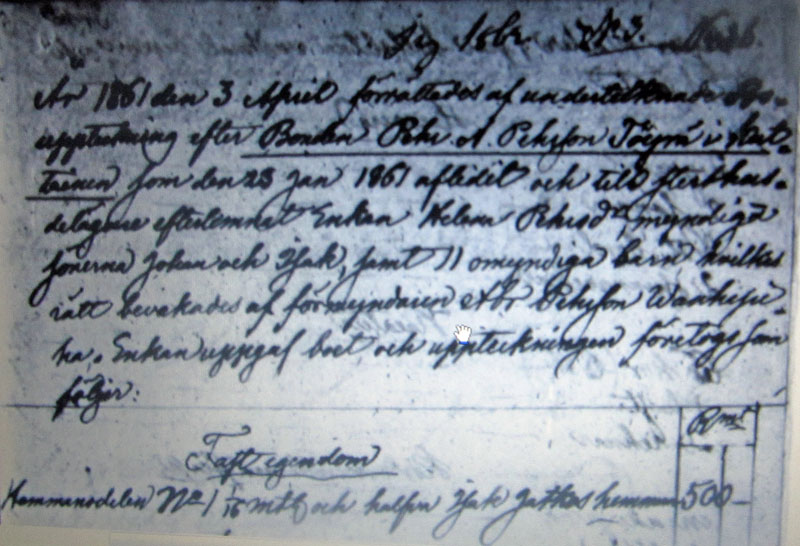 No 3.
År 1861 den 3 April förrättades af undertecknade Bo-
uppteckning efter Bonden Pehr A. Pehrson Töyrä i Kut-
tainen som den 23 Jan 1861 aflidit och till sterbhus-
delägare efterlemnat Enkan Helena Pehrsdr, myndiga
sönerna Johan och Isak, samt 11 omyndiga barn hvilkas
rätt bevakades af förmyndaren Abr Pehrson
Enkan uppgaf boet, och uppteckningen företogs som
följer:
Rmt
Fast egendom
Hemmansdelen No 1 1/16 mtl och halfva Isak hemman 500 –